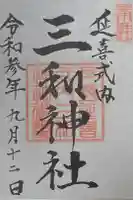 延喜式内
三和神社
令和参年九月十二日